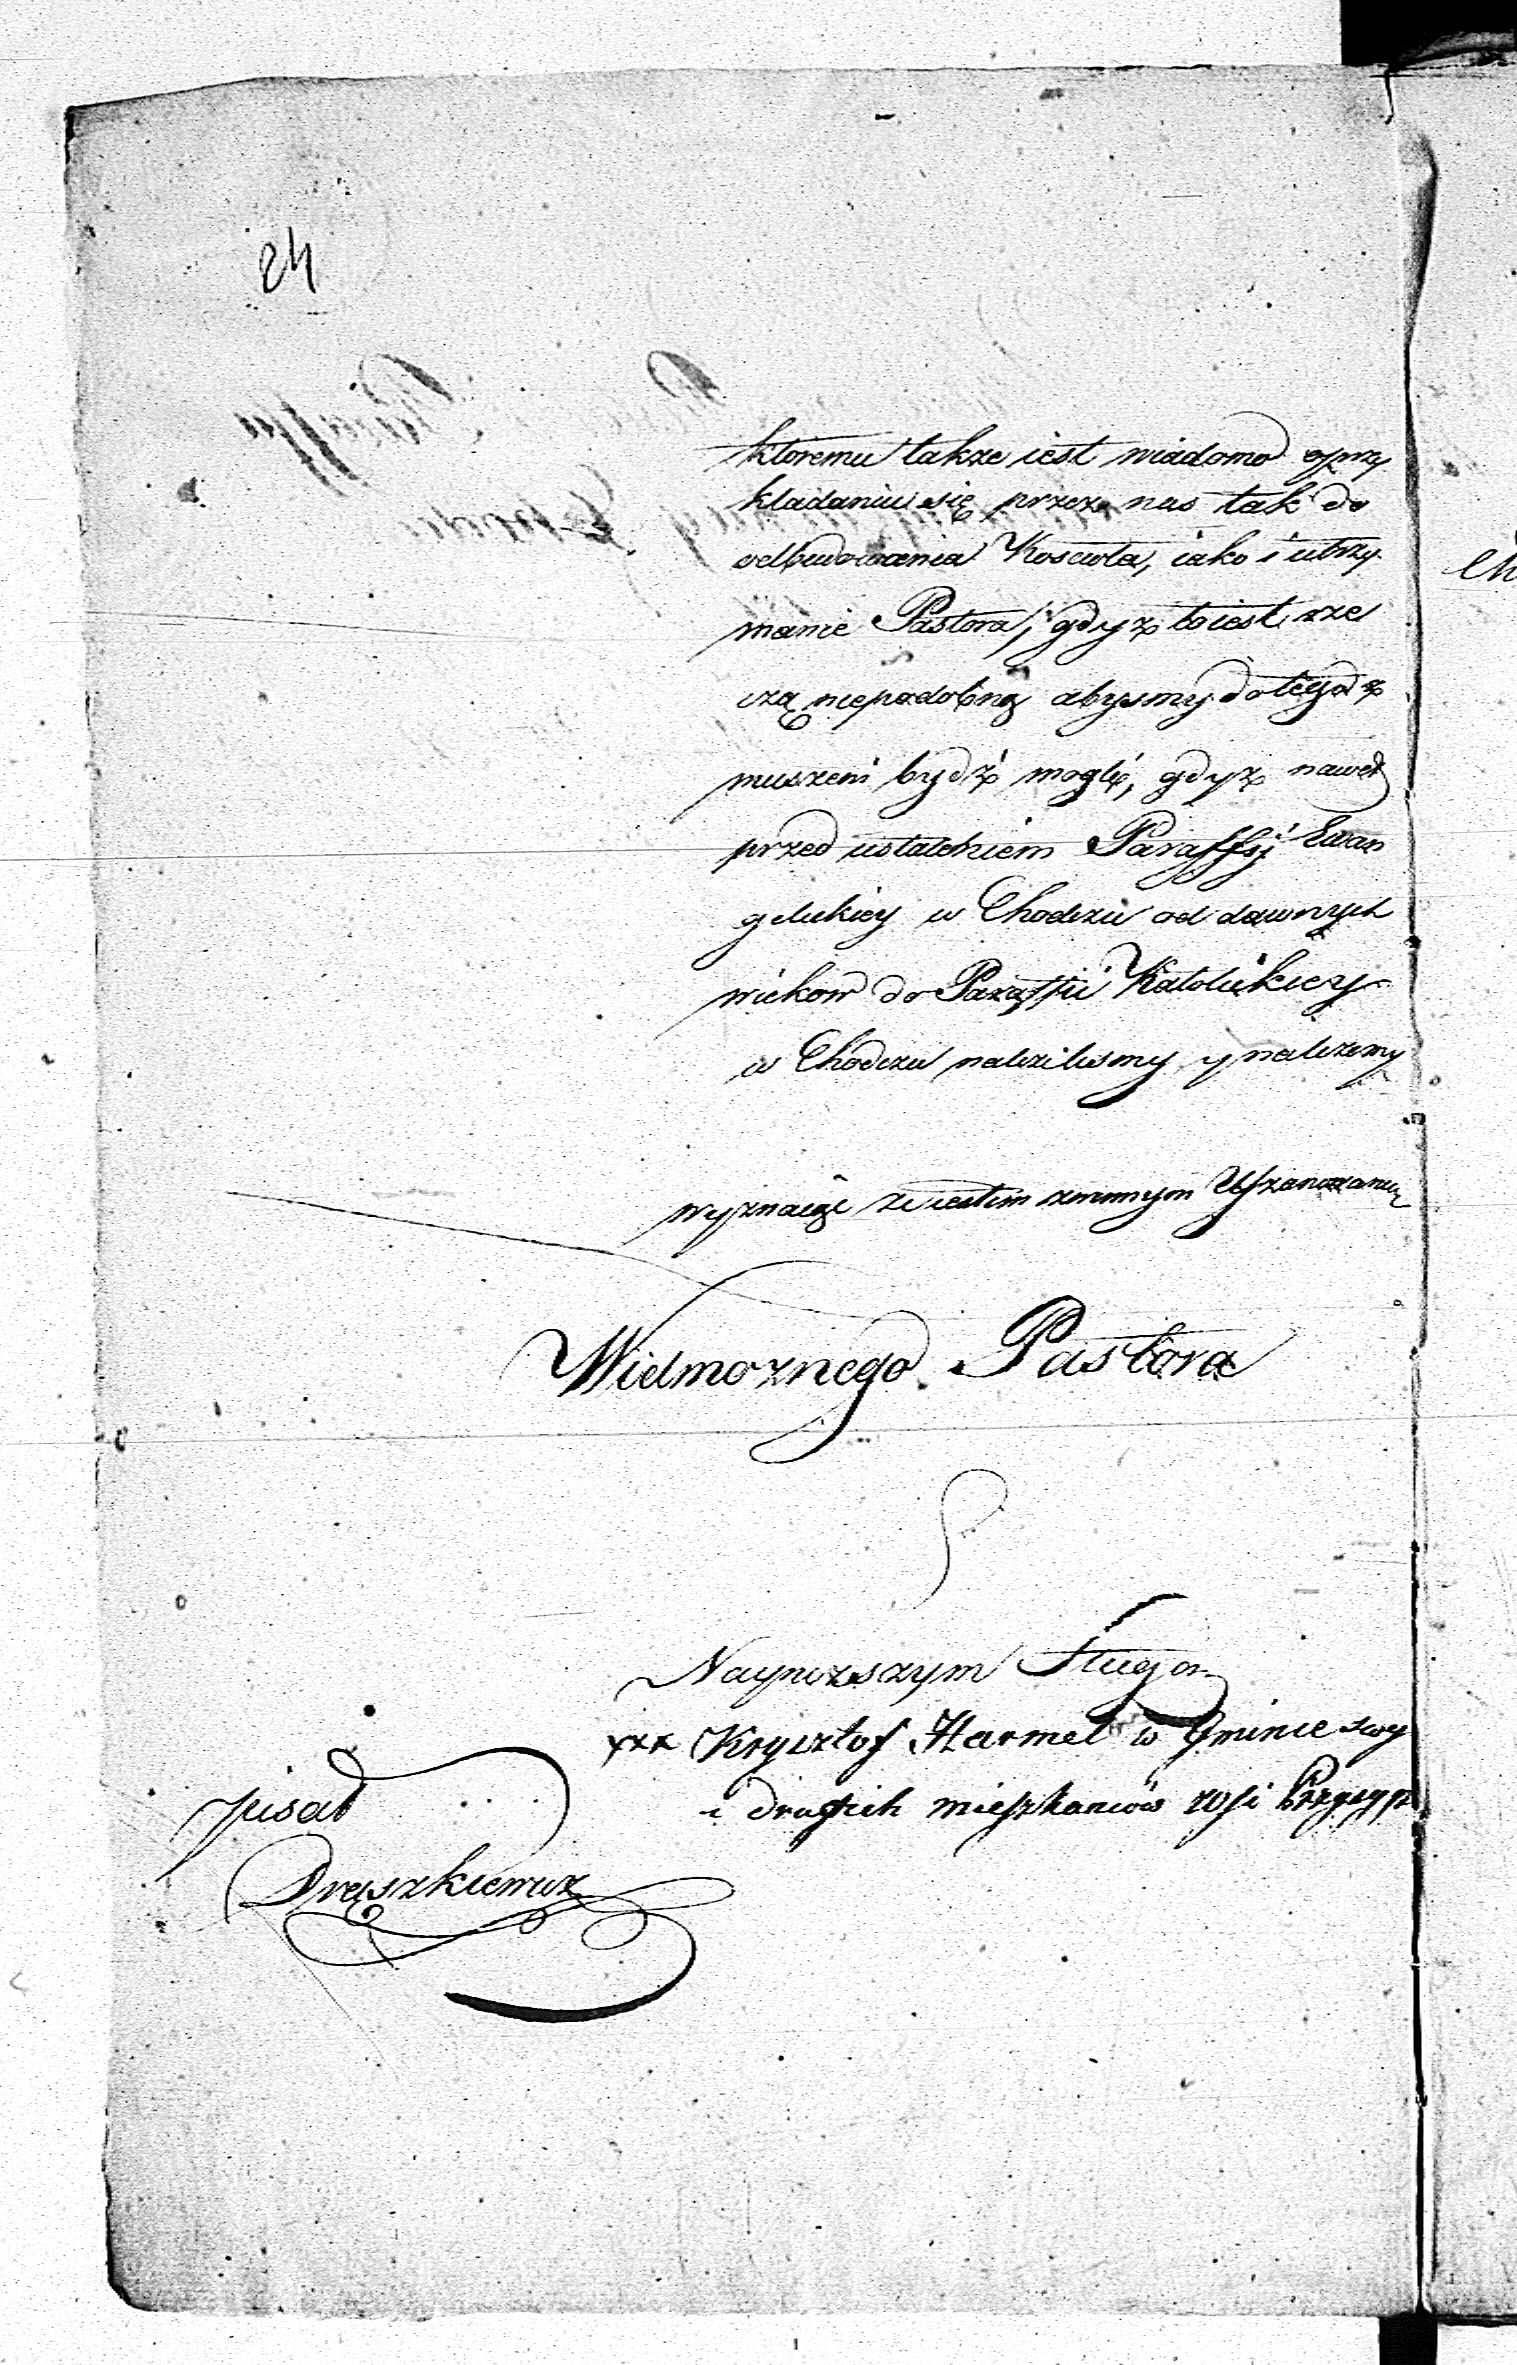 24
ktoremu takze iest wiadomo o przy
kladaniu się przez nas tak do
odbudowania Kosciola, iako i utrzy
manie Pastora, gdyz to iest rze
czą niepodobną abysmy do tego z
muszeni bydź mogli, gdyz nawet
przed ustaleniem Paraffij Ewan
gelickiey w Chodczu od dawnych
wiekow do Paraffii Katolickiey
w Chodczu nalezelismy y nalezemy
wyznaięc ze iestem z Uszanowaniem
Wielmoznego Pastora
Nayniższym Sługą
xxx Krysztof Harmel w Jminie swym
i drugich mieszkanców wsi Przysyp
pisał
Dręszkiewicz
Ch
1